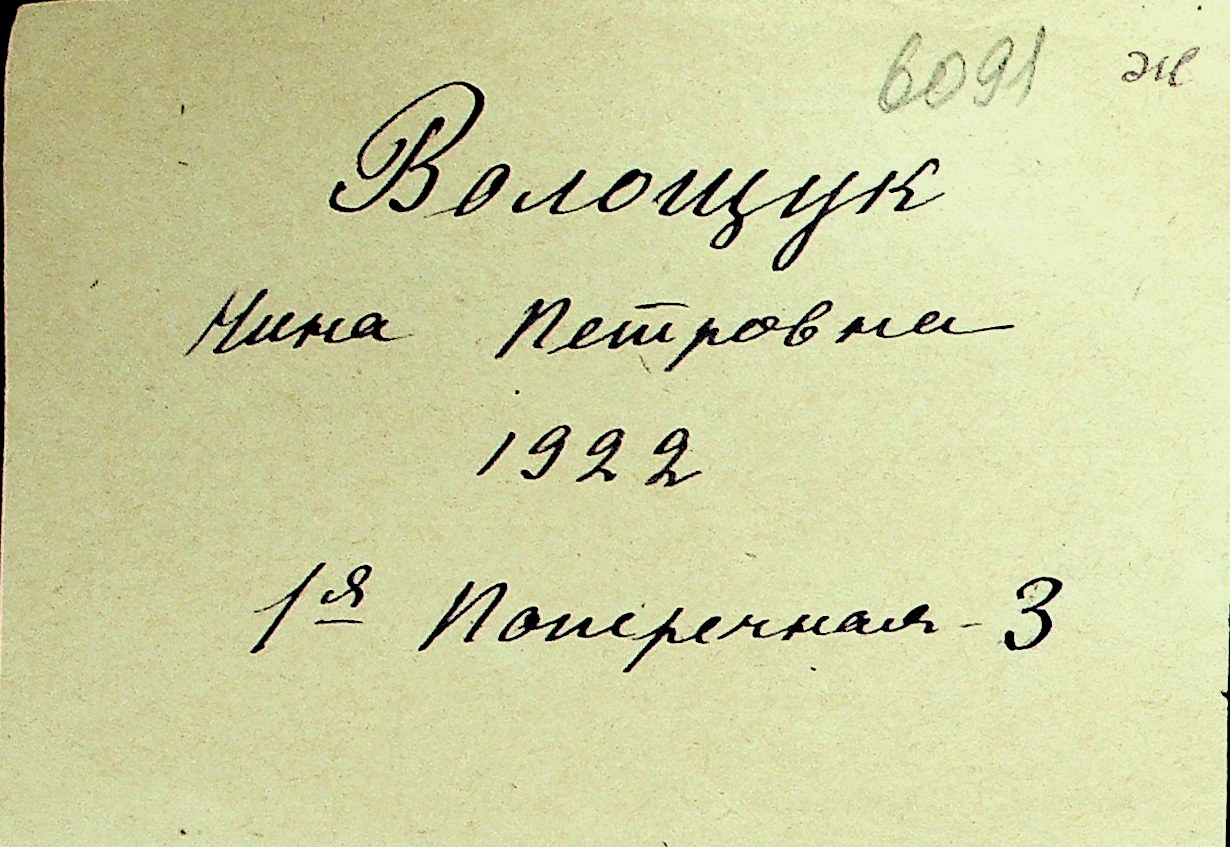 6091 ж
Волощук
Нина Петровна
1922
1я Поперечная - 3